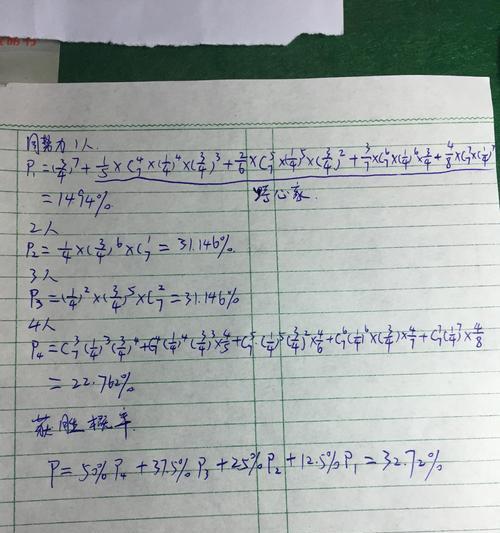 同势力1人
P₁=(3/4)⁷+1/5×C₇⁴×(1/4)⁴×(3/4)³+2/6×C₇⁵×(1/4)⁵×(3/4)²+3/7×C₇⁶×(1/4)⁶×3/4+4/8×C₇⁷×(1/4)⁷
=14.94%
野心家.
2人
P₂=1/4×(3/4)⁶×C₇¹=31.146%
3人
P₃=(1/4)²×(3/4)⁵×C₇²=31.146%
4人
P₄=C₇³(1/4)³(3/4)⁴+C₇⁴(1/4)⁴(3/4)³×4/5+C₇⁵·(1/4)⁵(3/4)²×4/6+C₇⁶(1/4)⁶×(3/4)×4/7+C₇⁷(1/4)⁷×4/8
=22.762%
获胜概率
P=50%P₄+37.5%P₃+25%P₂+12.5%P₁=32.72%